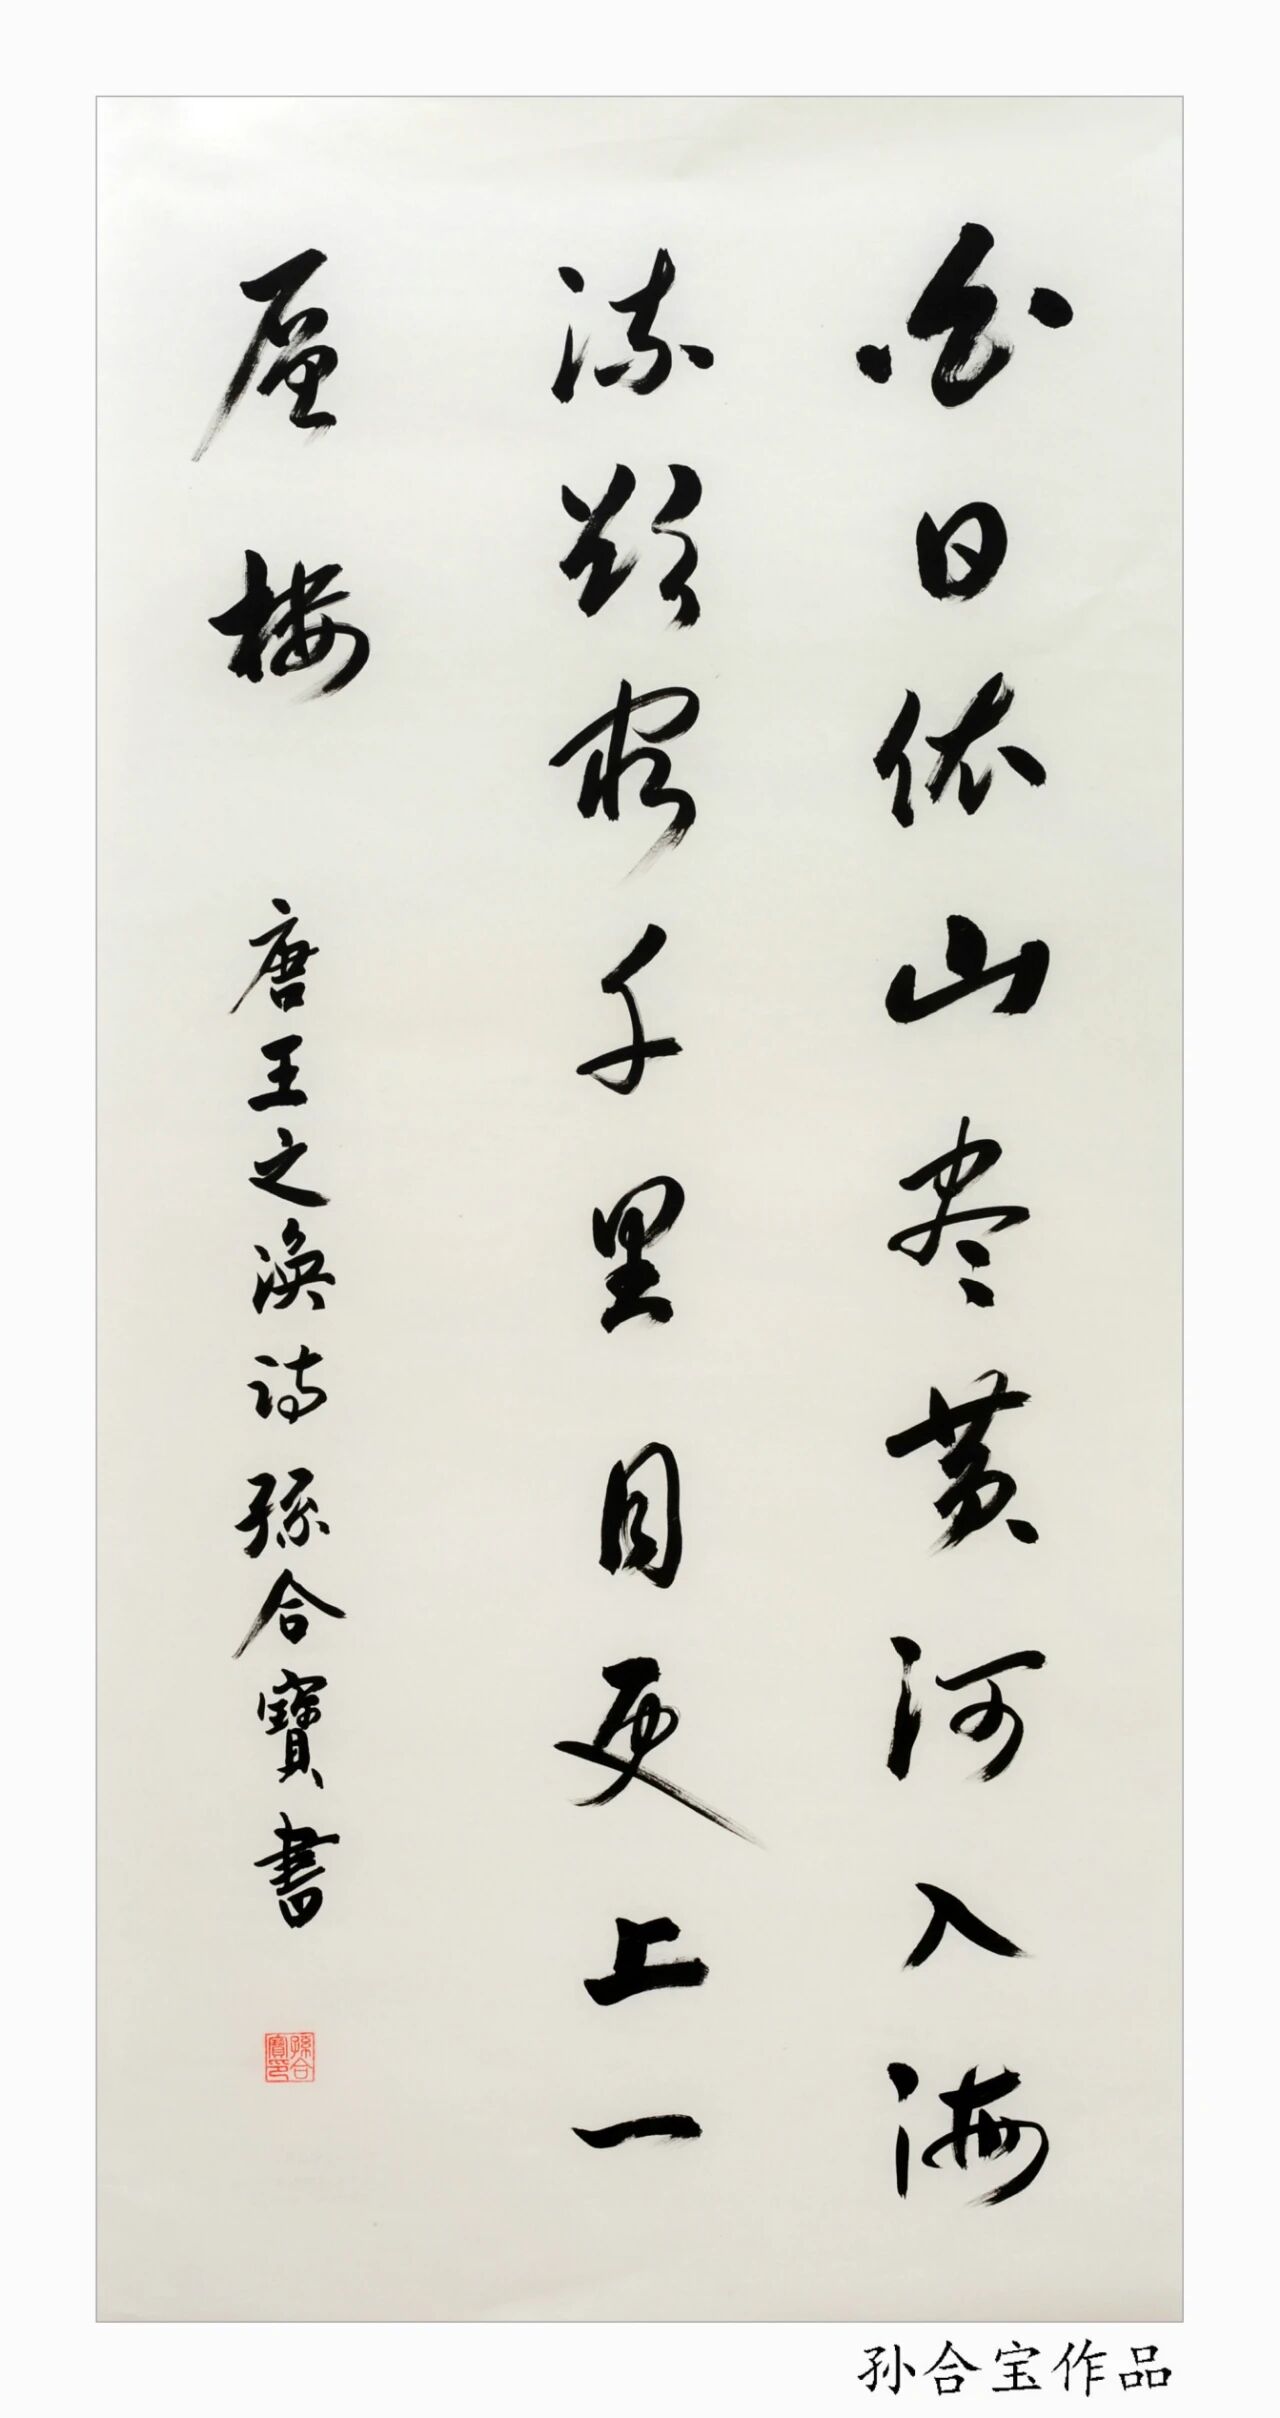 白日依山尽黄河入海
流欲穷千里目更上一
层楼
唐王之涣诗孫合寶書
孫合寶印
孙合宝作品